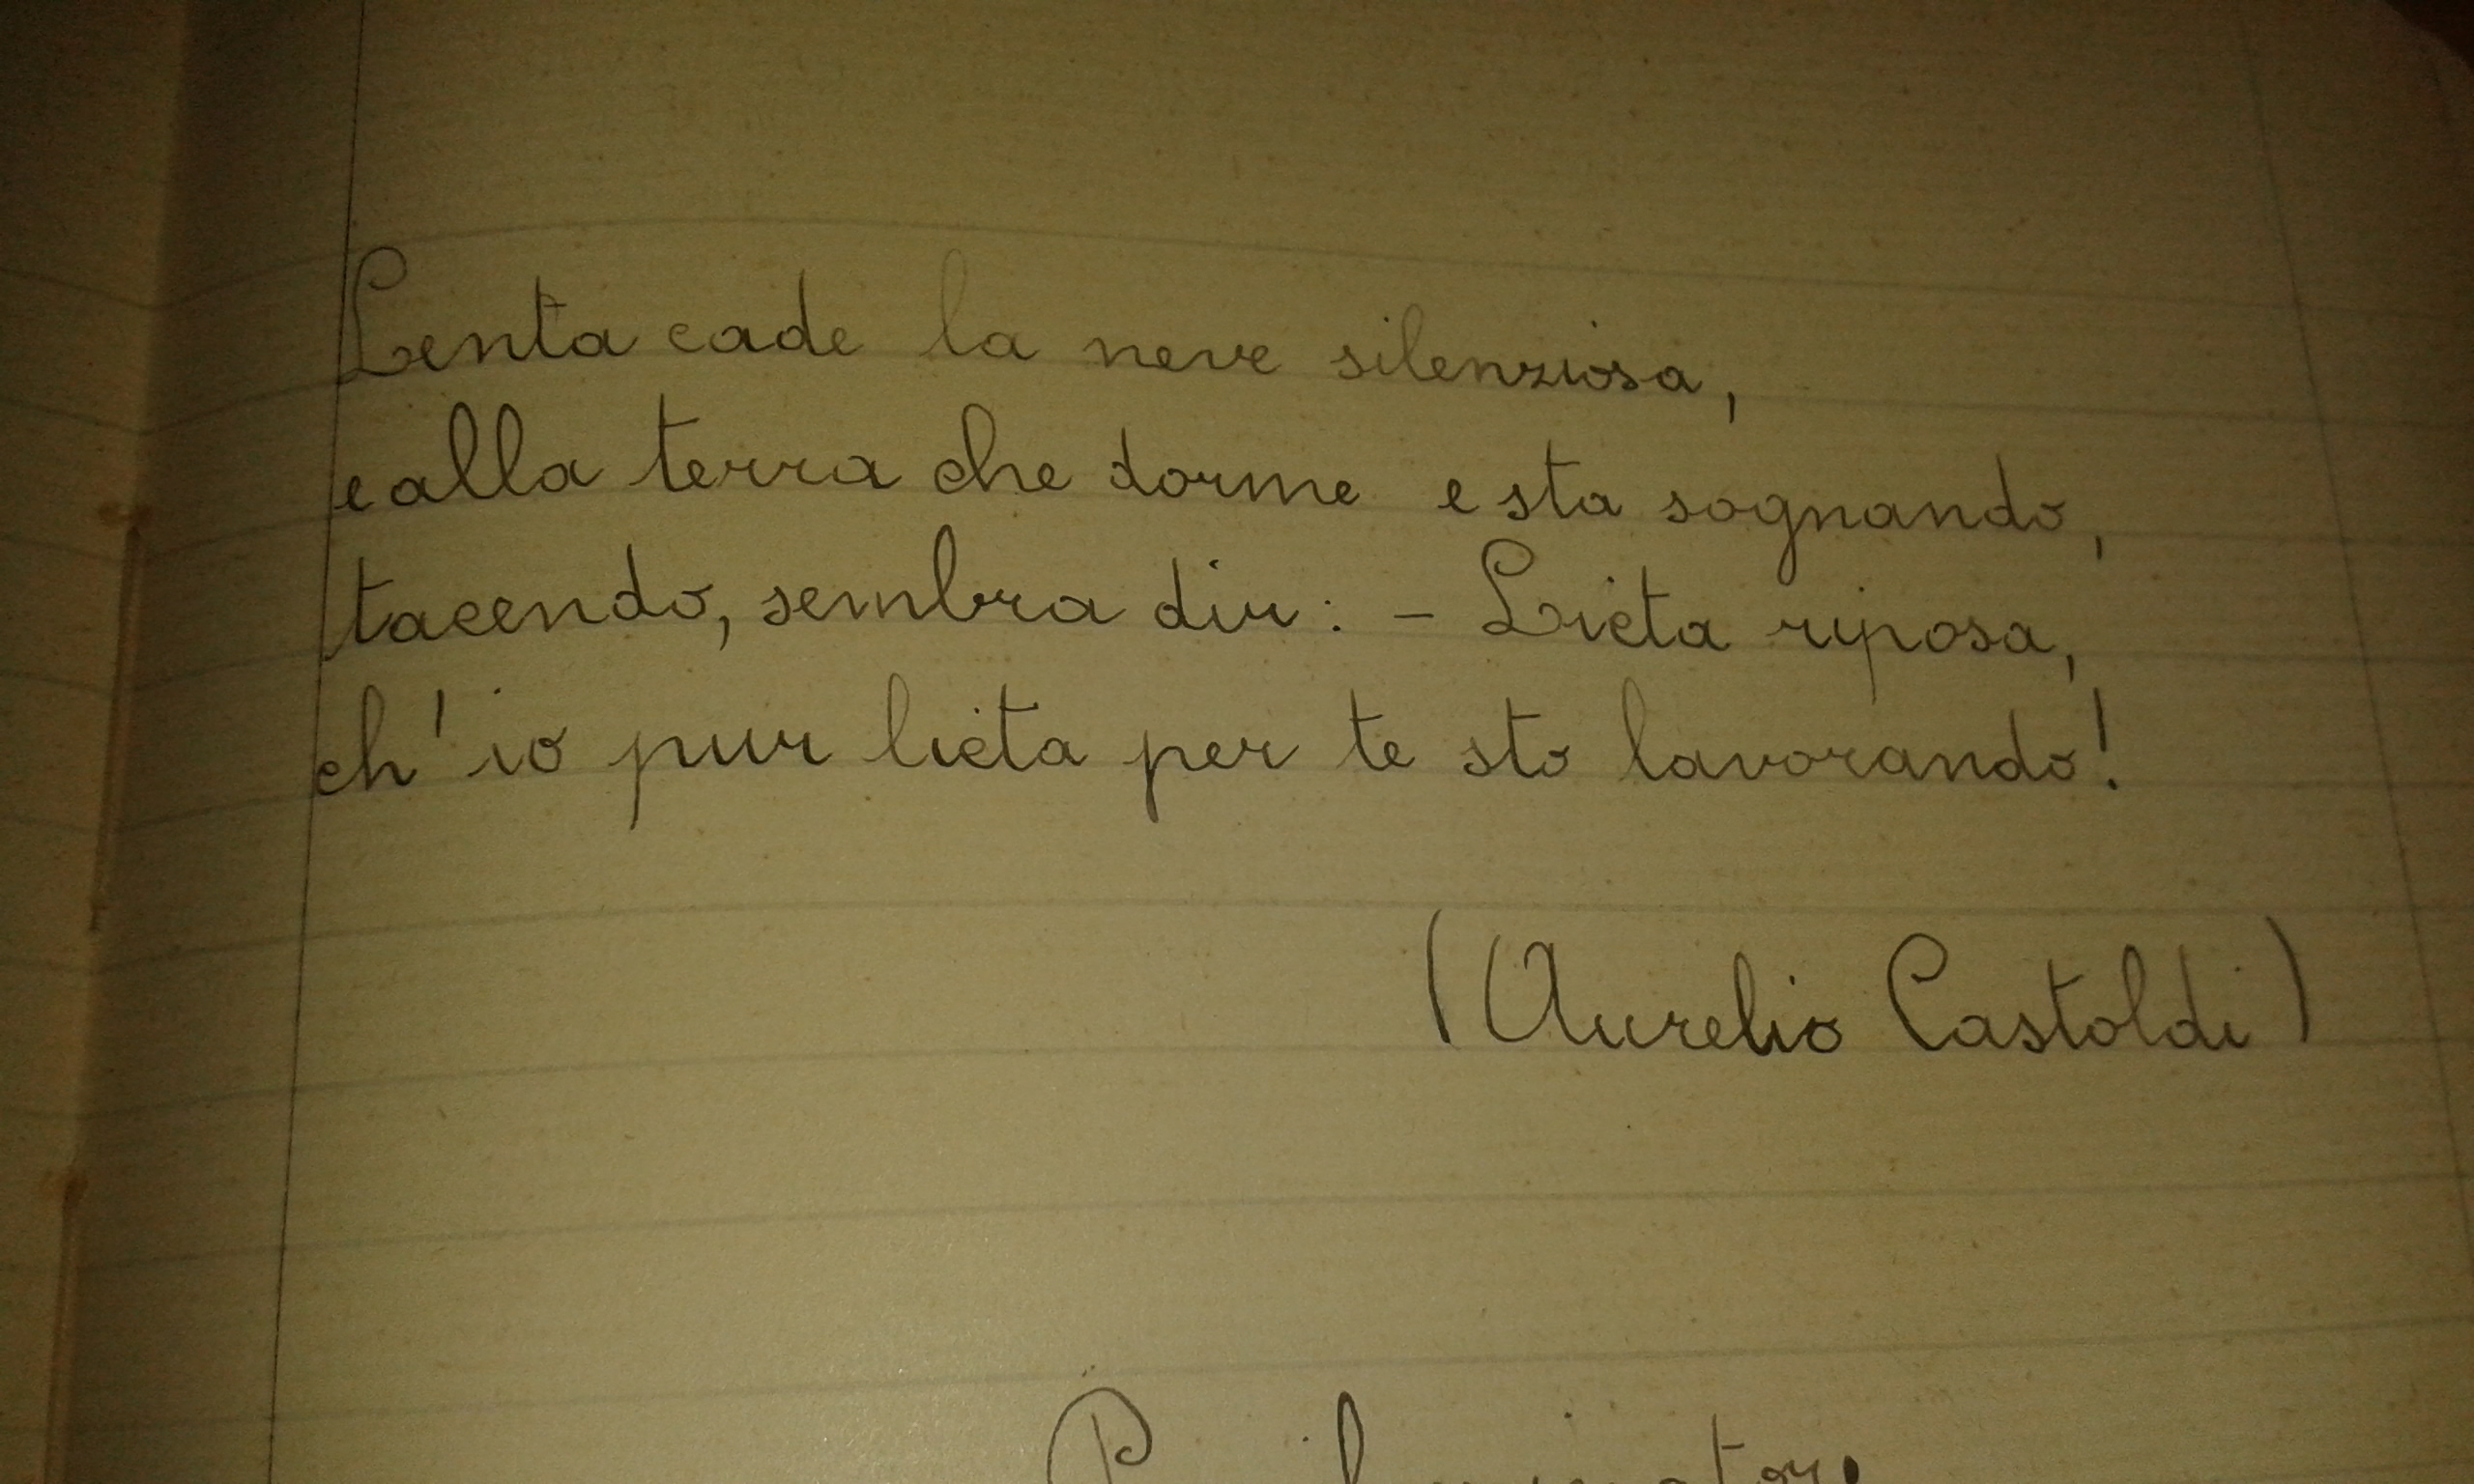 Lenta cade la neve silenziosa,
e alla terra che dorme e sta sognando,
tacendo, sembra dir: - Lieta riposa,
ch'io pur lieta per te sto lavorando!
(Aurelio Castoldi)